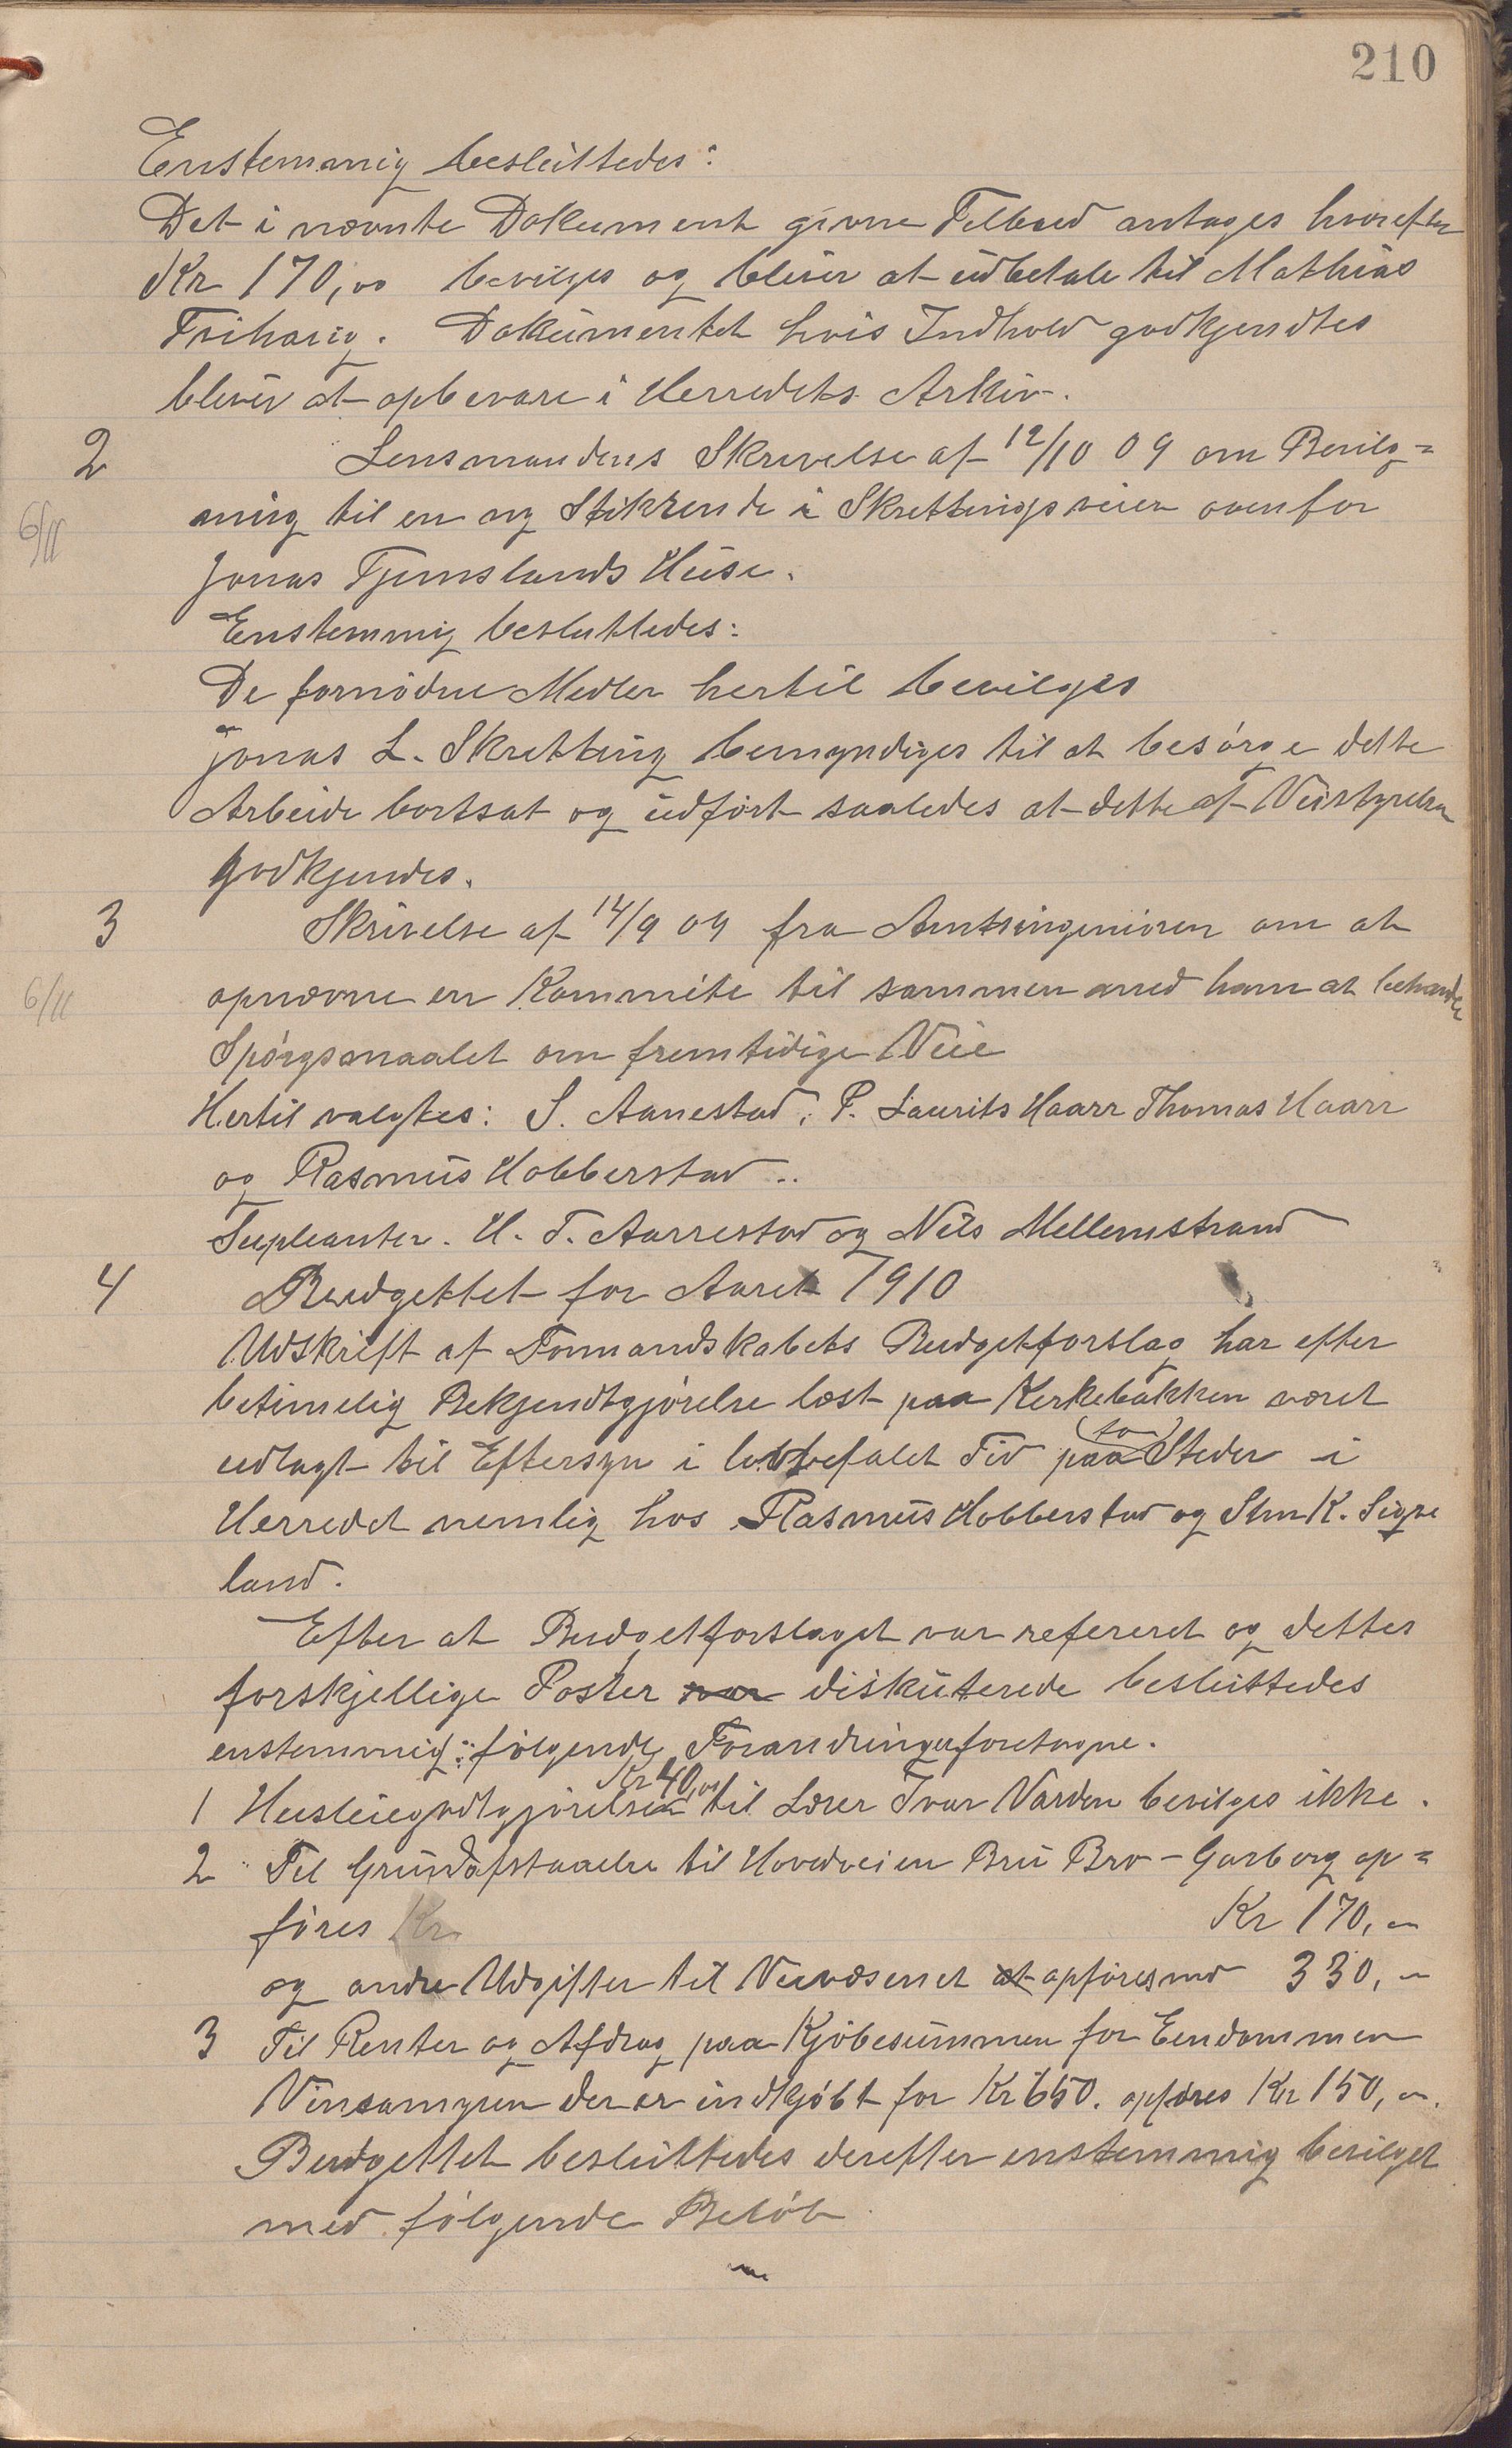 210
Enstemmig besluttedes:
Det i nævnte Dokument givne Tilbud antages hvorefter
Kr 170,00 bevilges og bliver at udbetale til Mathias
Friharig. Dokumentet hvis Indhold godkjendtes
bliver at opbevare i Herredets Arkiv.
2 Lensmandens Skrivelse af 12/10 09 om Bevilg=
6/11 ning til en ny Stikrende i Skrettingsveien ovenfor
Jonas Tjemslands Huse.
Enstemmig besluttedes:
De fornødne Medler hertil bevilges
Jonas L. Skretting bemyndiges til at besørge dette
Arbeide bortsat og udført saaledes at dette af Veistyrelsen
godkjendes.
3 Skrivelse af 14/9 09 fra Amtsingeniøren om at
6/11 opnævne en Kommite til sammen med ham at behandle
Spørgsmaalet om fremtidige Veie
Hertil valgtes: S. Aanestad, P. Laurits Haarr Thomas Haarr
og Rasmus Hobberstad..
Supleanter. H. T. Aarrestad og Nils Mellemstrand
4 Budgettet for Aaret 1910
Udskrift af Formandskabets Budgetforslag har efter
betimelig Bekjendtgjørelse læst paa Kerkebakken været
udlagt til Eftersyn i lovbefalet Tid paa to Steder i
Herredet nemlig hos Rasmus Hobberstad og K. Sigve
land.
Efter at Budgetforslaget var refereret og dettes
forskjellige Poster var diskuterede besluttedes
enstemmig: følgende Forandringer foretagne.
1 Husleiegodtgjørelsen Kr 40,00 til Lærer Ivar Varden bevilges ikke.
2 Til Grundafstaaelse til Hovedveien Bru Bro - Garborg op=
føres Kr Kr 170,00
og andre Udgifter til Veivæsenet at opføres med 330,00
3 Til Renter og Afdrag paa Kjøbesummen for Eendommen
der er indkjøbt for Kr 650. opføres Kr 150,00.
Budgettet besluttedes derefter enstemmig bevilget
med følgende Beløb